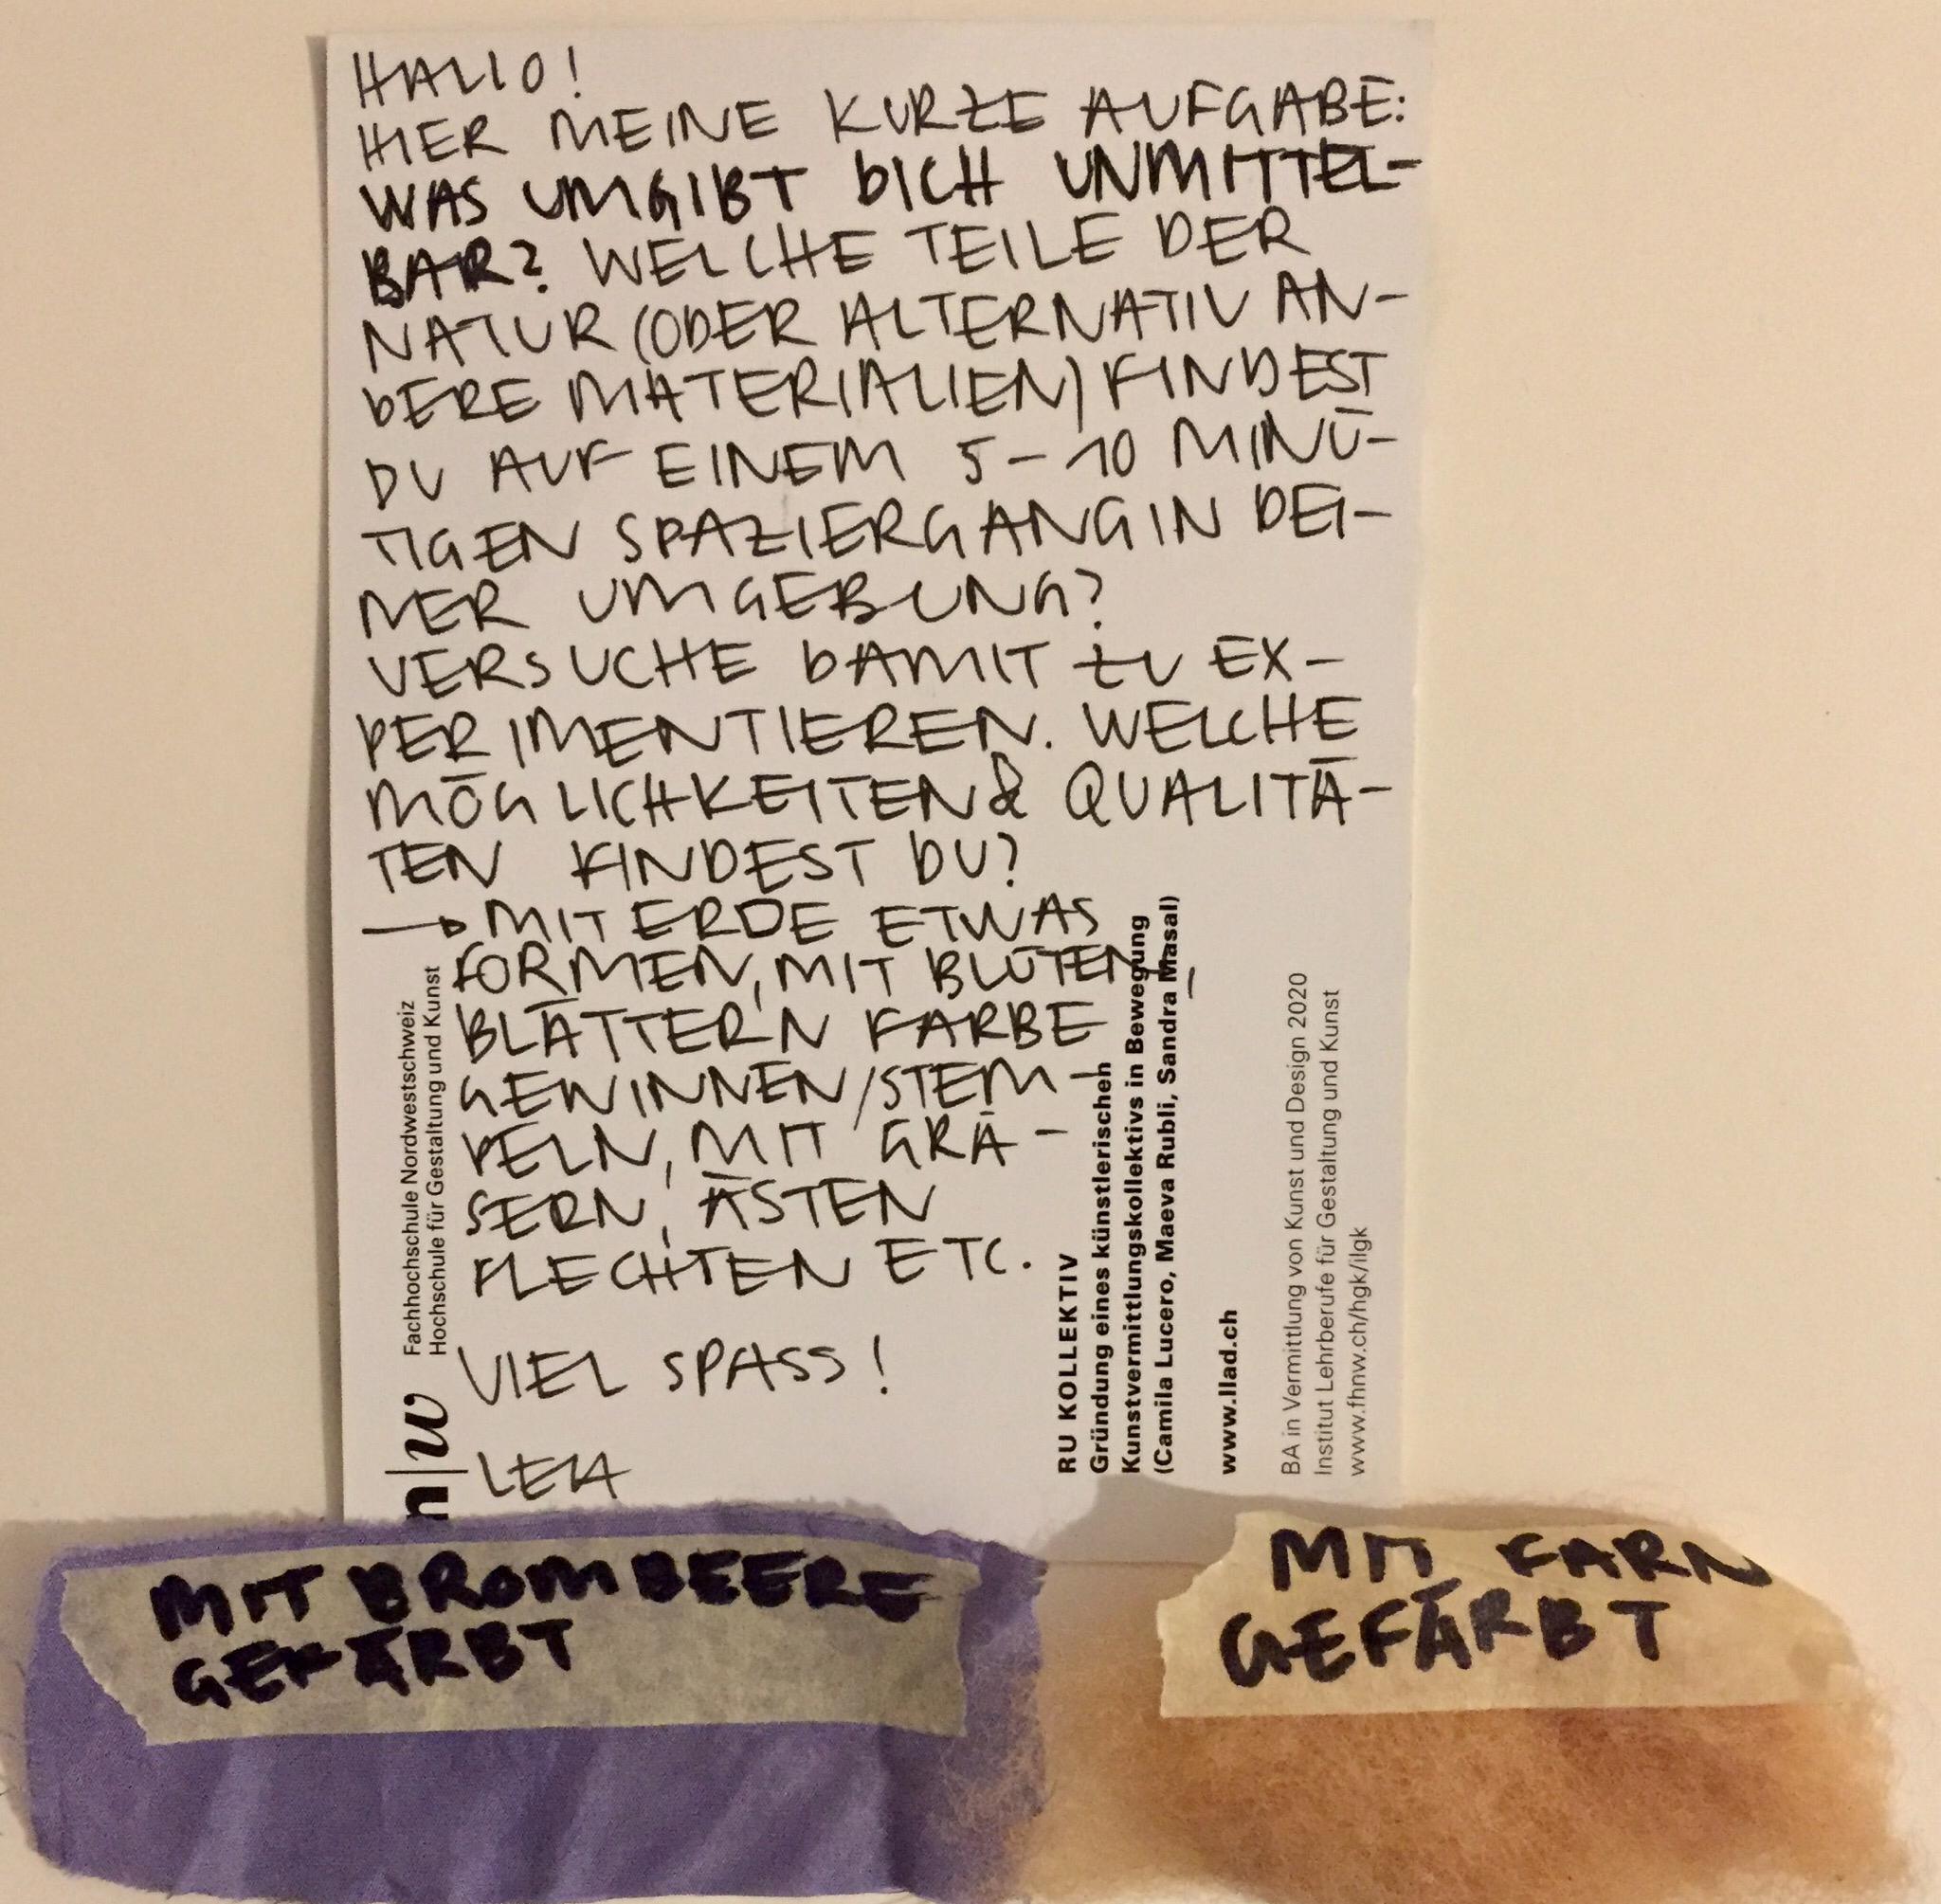 HALLO!
HIER MEINE KURZE AUFGABE:
WAS UMGIBT DICH UNMITTEL-
BAR? WELCHE TEILE DER
NATUR (ODER ALTERNATIV AN-
DERE MATERIALIEN) FINDEST
DU AUF EINEM 5-10 MINÜ-
TIGEN SPAZIERGANG IN DEI-
NER UMGEBUNG?
VERSUCHE DAMIT ZU EX-
PERIMENTIEREN. WELCHE
MÖGLICHKEITEN & QUALITÄ-
TEN FINDEST DU?
→ MIT ERDE ETWAS
FORMEN, MIT BLÜTEN,
BLÄTTERN FARBE
GEWINNEN/STEM-
PELN, MIT GRÄ-
SERN, ÄSTEN
FLECHTEN ETC.
VIEL SPASS!
LEA
n|w
Fachhochschule Nordwestschweiz
Hochschule für Gestaltung und Kunst
RU KOLLEKTIV
Gründung eines künstlerischen
Kunstvermittlungskollektivs in Bewegung
(Camila Lucero, Maeva Rubli, Sandra Masal)
www.llad.ch
BA in Vermittlung von Kunst und Design 2020
Institut Lehrberufe für Gestaltung und Kunst
www.fhnw.ch/hgk/ilgk
MIT BROMBEERE
GEFÄRBT
MIT FARN
GEFÄRBT